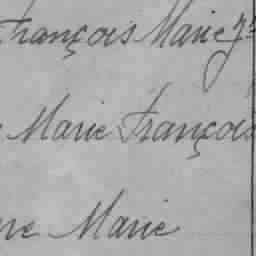 François Marie Js
Marie François
ne Marie